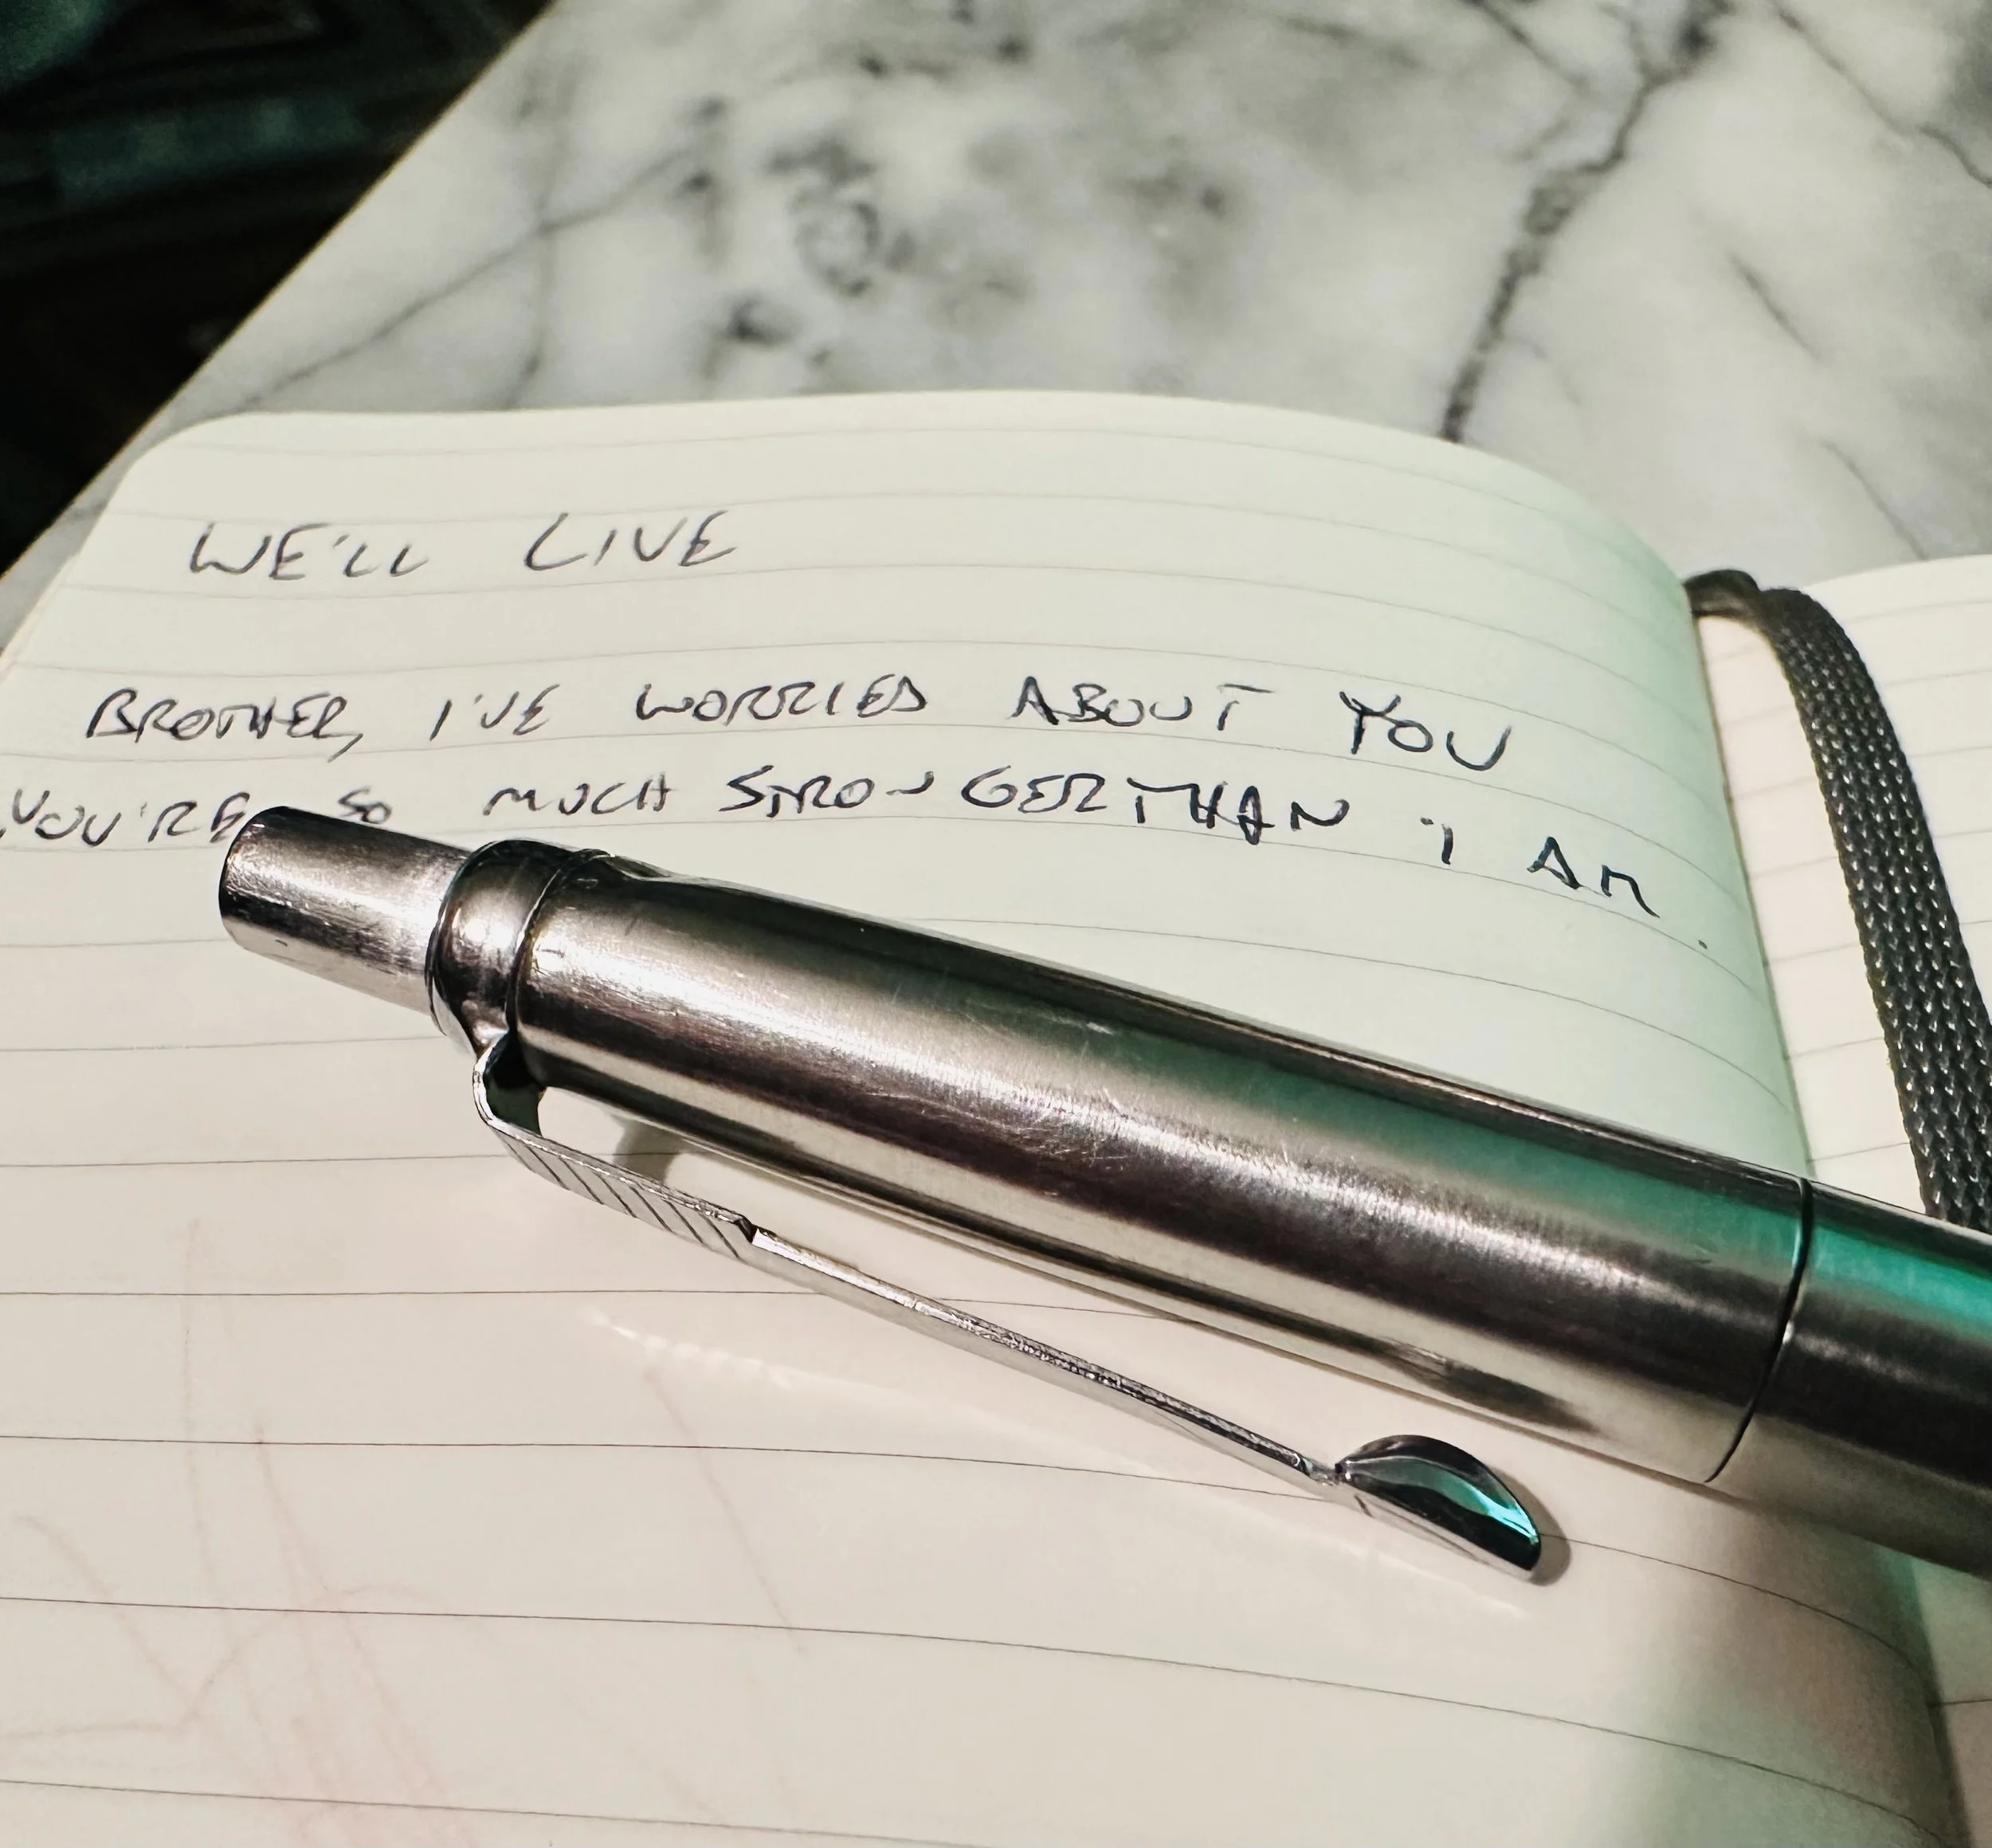 WE'LL LIVE
BROTHER, I'VE WORRIED ABOUT YOU
YOU'RE SO MUCH STRONGER THAN I AM